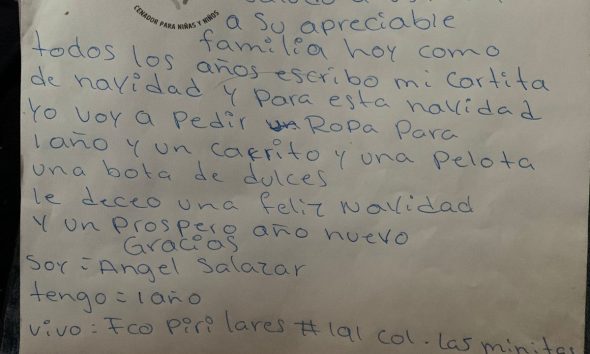 CENADOR PARA NIÑAS Y NIÑOS
a su apreciable
familia hoy como
todos los años escribo mi cartita
de navidad y para esta navidad
Yo voy a pedir un Ropa para
1 año y un carrito y una pelota
una bota de dulces
le deceo una feliz Navidad
y un prospero año nuevo
Gracias
Soy = Angel Salazar
tengo = 1 año
vivo = Fco Piri lares # 191 col. las minitas